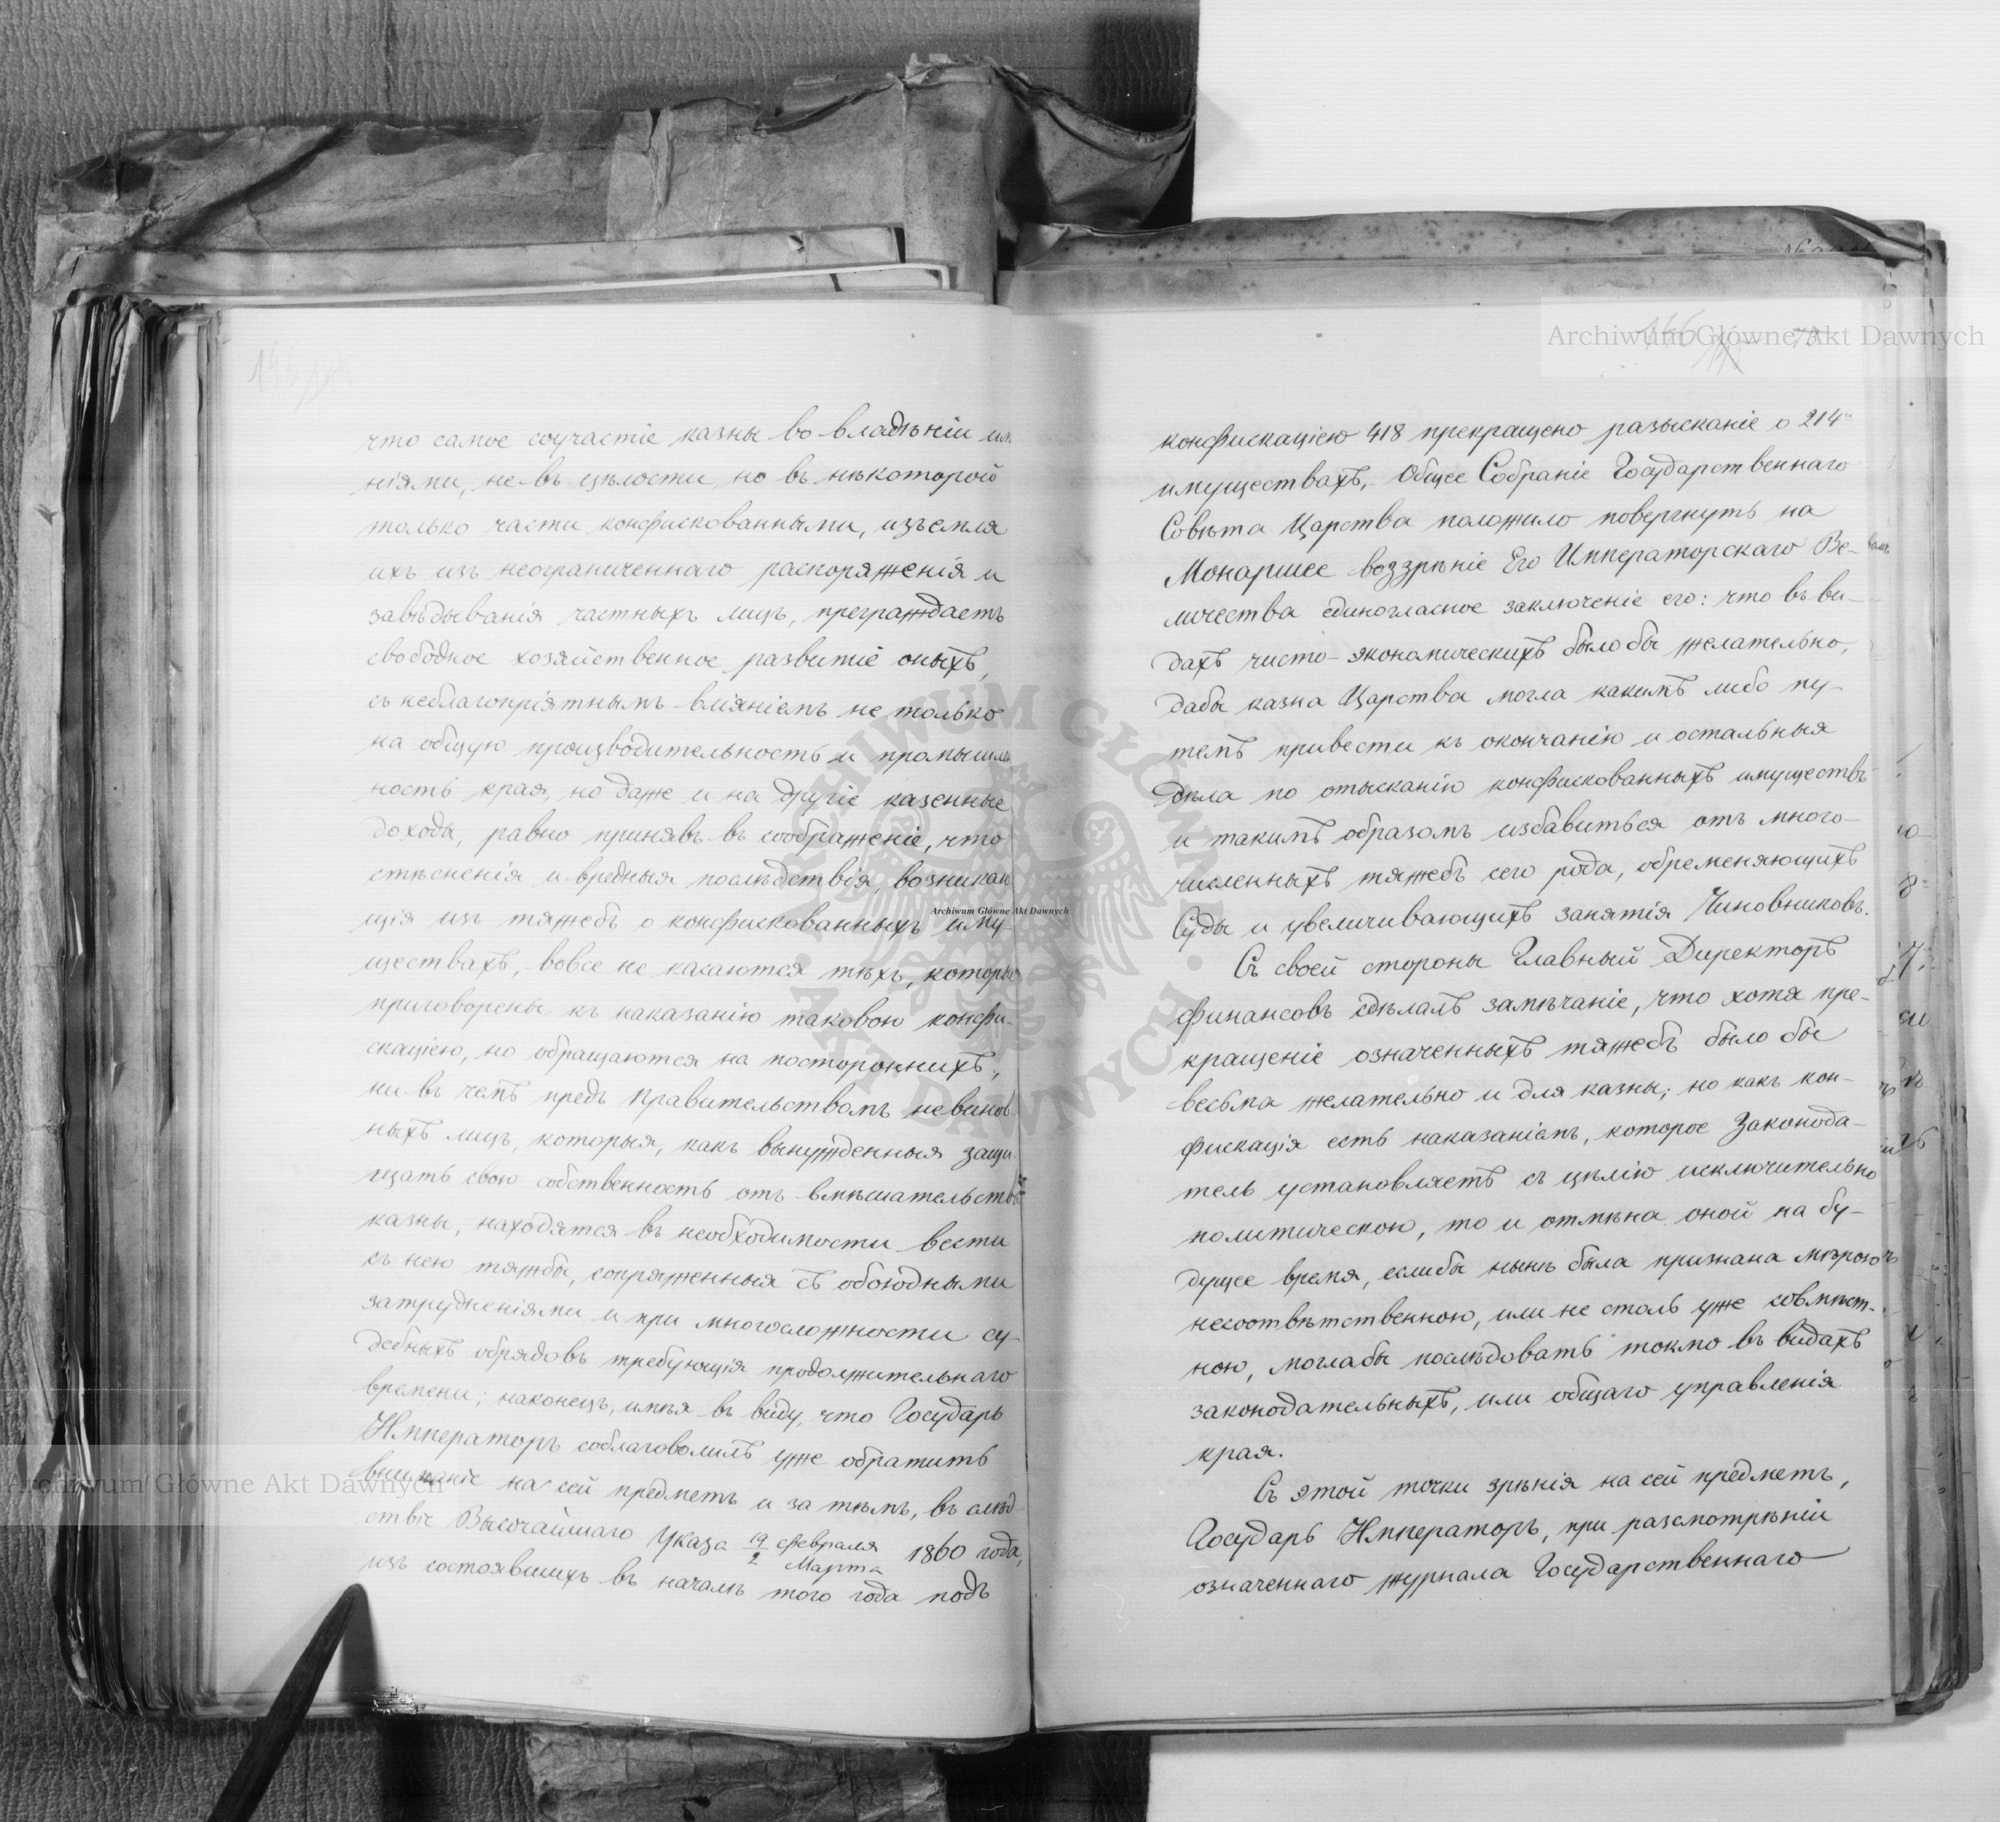 что самое соучастіе казны во владѣніи имѣ
ніями, не въ цѣлости, но въ нѣкоторой
только части конфискованными, изъемля
ихъ изъ неограниченнаго распоряженія и
завѣдыванія частныхъ лицъ, преграждаетъ
свободное хозяйственное развитіе оныхъ,
съ неблагопріятнымъ вліяніемъ не только
на общую производительность и промышлен
ность края, но даже и на другіе казенные
доходы, равно принявъ въ соображеніе, что
стѣсненія и вредныя послѣдствія, возникаю
щія изъ тяжебъ о конфискованныхъ иму-
ществахъ, вовсе не касаются тѣхъ, которые
приговорены къ наказанію таковою конфи-
скаціею, но обращаются на постороннихъ,
ни въ чемъ предъ Правительствомъ невинов-
ныхъ лицъ, которыя, какъ вынужденныя защи
щать свою собственность отъ вмѣшательства
казны, находятся въ необходимости вести
съ нею тяжбы, сопряженныя съ обоюдными
затрудненіями и при многосложности су-
дебныхъ обрядовъ требующія продолжительнаго
времени; наконецъ, имѣя въ виду, что Государь
Императоръ соблаговолилъ уже обратить
вниманіе на сей предметъ и за тѣмъ, въ слѣд-
ствіе Высочайшаго Указа 19 Февраля / 2 Марта 1860 года,
изъ состоявшихъ въ началѣ того года подъ
146
конфискаціею 418 прекращено разысканіе о 214
имуществахъ, Общее Собраніе Государственнаго
Совѣта Царства положило повергнуть на
Монаршее воззрѣніе Его Императорскаго Ве-
личества единогласное заключеніе его: что въ ви-
дахъ чисто-экономическихъ было бы желательно,
дабы казна Царства могла какимъ либо пу-
темъ привести къ окончанію и остальныя
дѣла по отысканію конфискованныхъ имуществъ
и такимъ образомъ избавиться отъ много-
численныхъ тяжебъ сего рода, обременяющихъ
Суды и увеличивающихъ занятія Чиновниковъ.
Съ своей стороны Главный Директоръ
Финансовъ сдѣлалъ замѣчаніе, что хотя пре-
кращеніе означенныхъ тяжебъ было бы
весьма желательно и для казны; но какъ кон-
фискація есть наказаніемъ, которое Законода-
тель установляетъ съ цѣлію исключительно
политическою, то и отмѣна оной на бу-
дущее время, еслибы нынѣ была признана мѣрою
несоотвѣтственною, или не столь уже совмѣст-
ною, моглабы послѣдовать токмо въ видахъ
законодательныхъ, или общаго управленія
края.
Съ этой точки зрѣнія на сей предметъ,
Государь Императоръ, при разсмотрѣніи
означеннаго журнала Государственнаго
Archiwum Główne Akt Dawnych
Archiwum Główne Akt Dawnych
Archiwum Główne Akt Dawnych
ARCHIWUM GŁÓWNE · AKT DAWNYCH ·